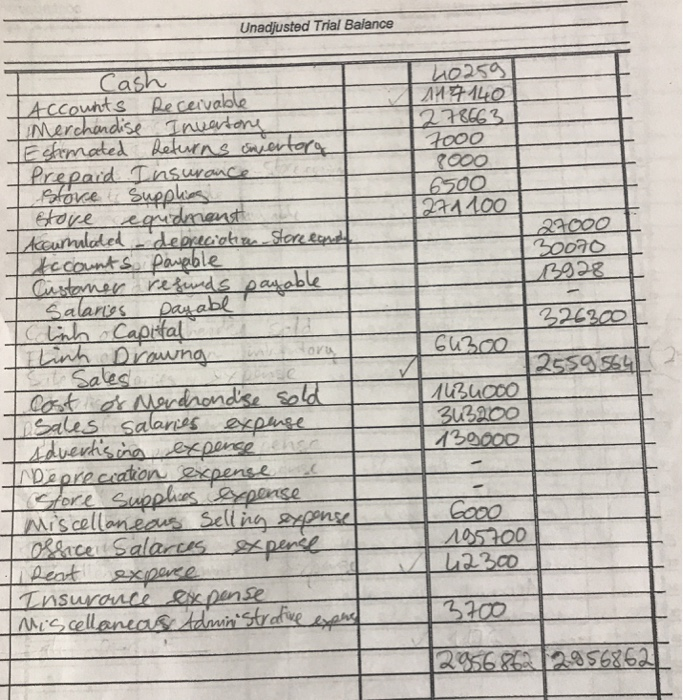 Unadjusted Trial Balance
Cash 40259
Accounts Receivable 117140
Merchandise Inventory 278663
Estimated Returns inventory 7000
Prepaid Insurance 8000
Store Supplies 6500
Store equipment 271100
Accumulated - depreciation - Store 27000
Accounts payable 30070
Customer refunds payable 13928
Salaries payabl -
Linh Capital 326300
Linh Drawng 64300
Sales 2559564
Cost of Merchandise sold 1434000
Sales salaries expense 343200
Advertising expense 139000
Depreciation expense -
Store Supplies expense -
Miscellaneous Selling expense 6000
Office Salarces expense 195700
Rent expense 42300
Insurance expense
Miscellaneous Administrative 3700
2956862 2956862